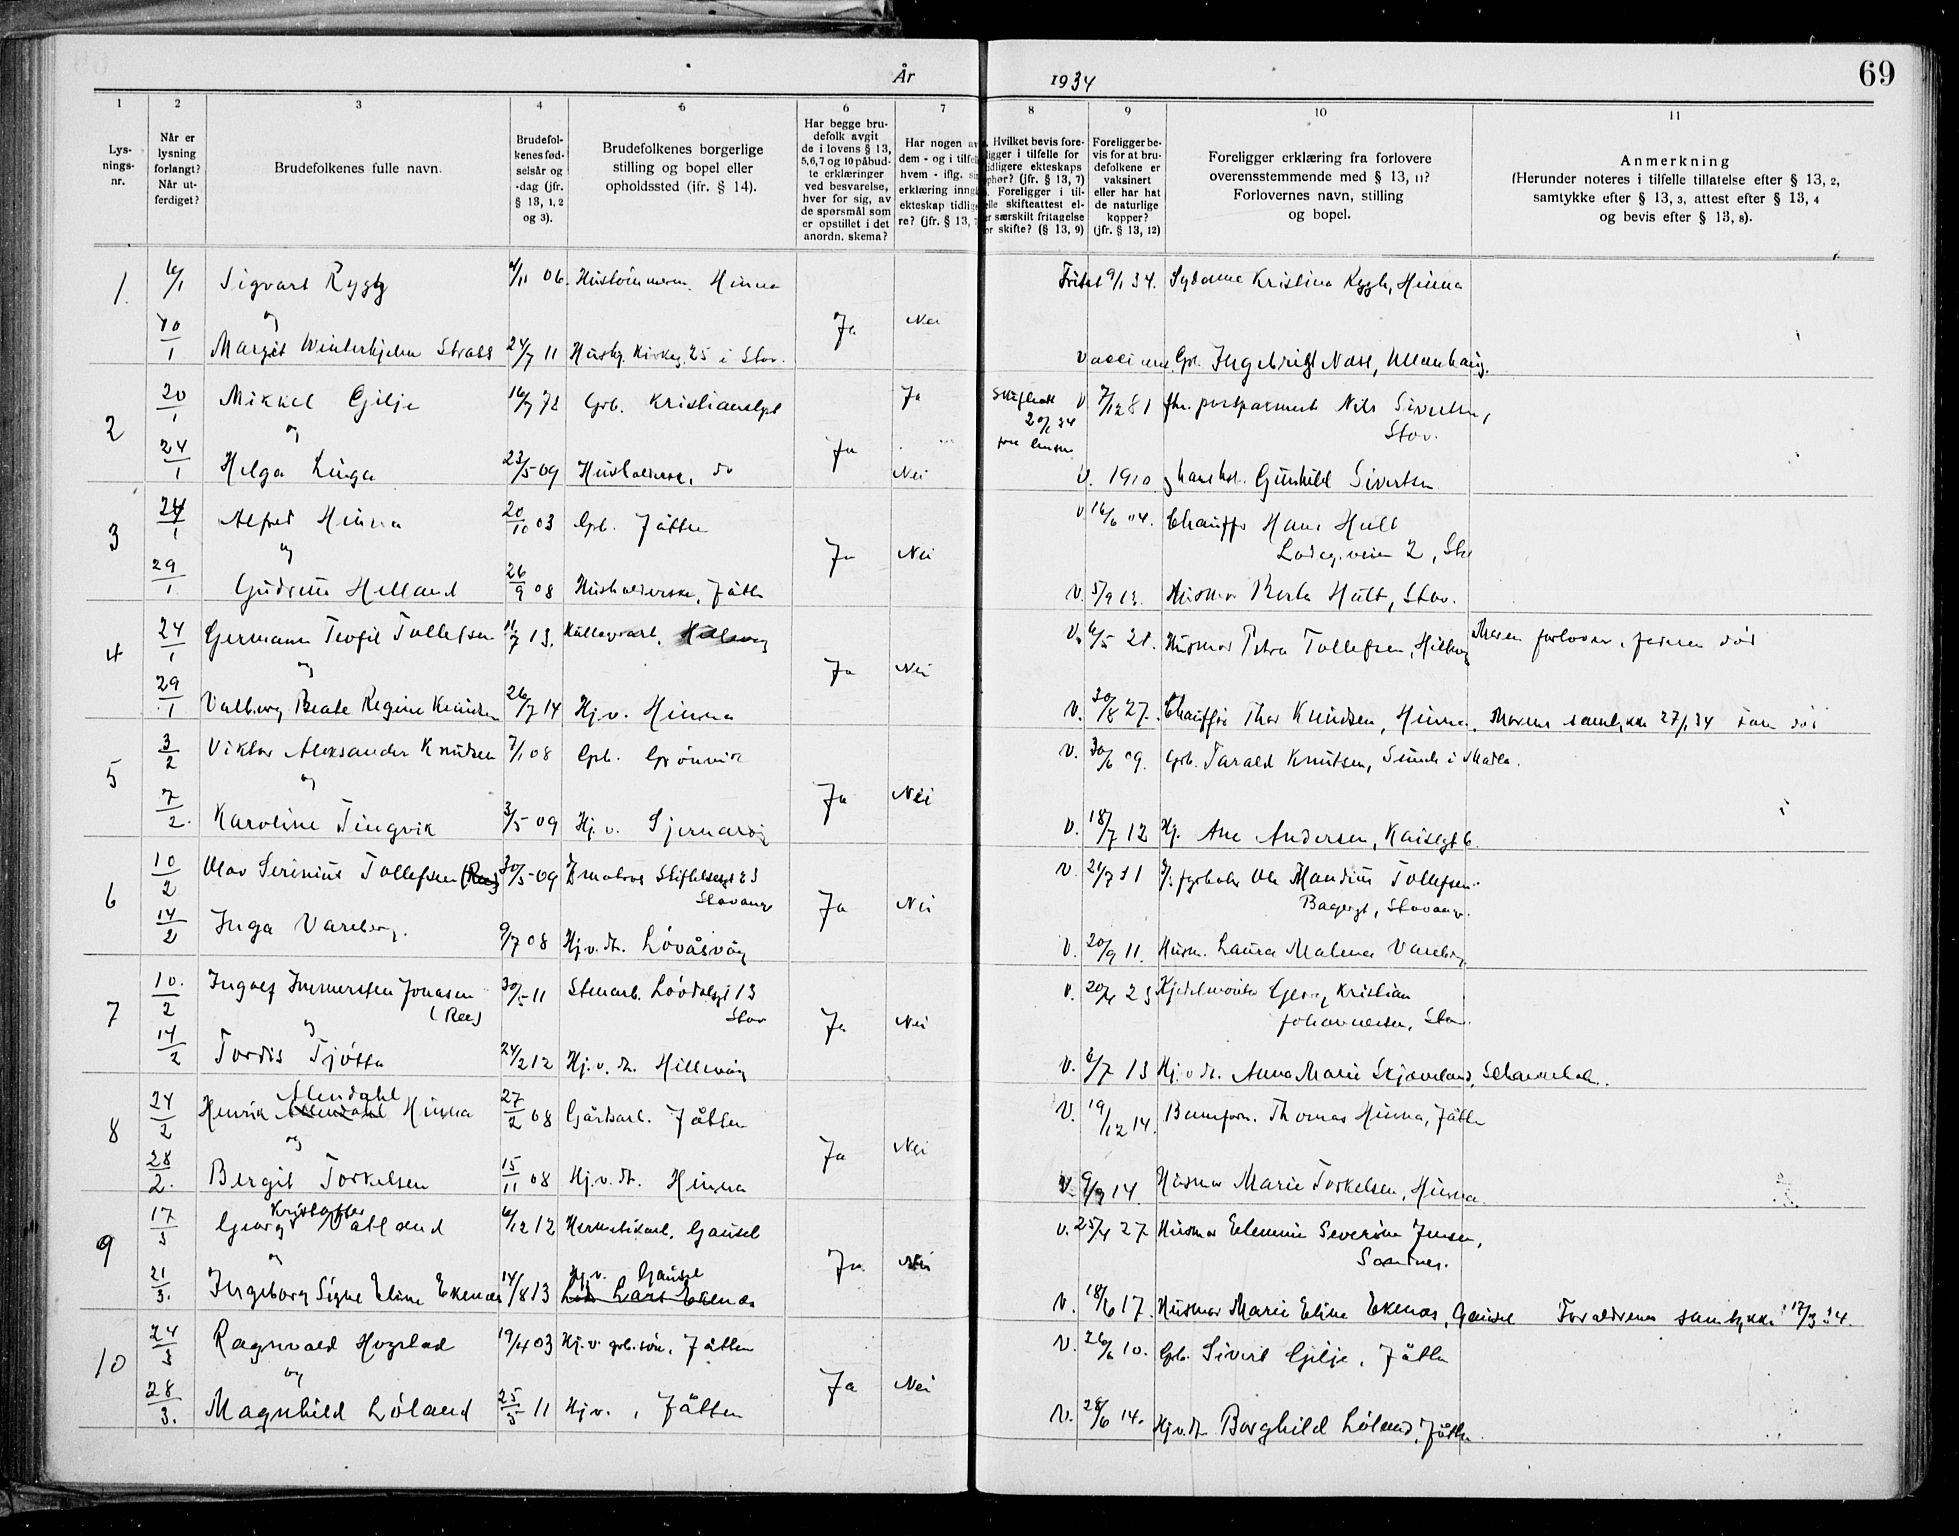 År 1934
69
1 2 3 4 5 6 7 8 9 10 11
Lys-
nings-
nr.
Når er
lysning
forlangt?
Når ut-
ferdiget?
Brudefolkenes fulle navn.
Brudefol-
kenes fød-
selsår og
-dag (jfr.
§ 13, 1, 2
og 3).
Brudefolkenes borgerlige
stilling og bopel eller
opholdssted (jfr. § 14).
Har begge bru-
defolk avgit
de i lovens § 13,
5, 6, 7 og 10 påbud-
te erklæringer
ved besvarelse,
hver for sig, av
de spørsmål som
er opstillet i det
anordn. skema?
Har nogen av
dem - og i tilfelle
hvem - iflg. si
erklæring inngå
ekteskap tidlige
re? (jfr. § 13, 7
Hvilket bevis fore-
ligger i tilfelle for
tidligere ekteskaps
ophør? (jfr. § 13, 7)
Foreligger i til-
felle skifteattest el-
er særskilt fritagelse
or skifte? (§ 13, 9)
Foreligger be-
vis for at bru-
defolkene er
vaksinert
eller har hat
de naturlige
kopper?
(jfr. § 13, 12)
Foreligger erklæring fra forlovere
overensstemmende med § 13, 11?
Forlovernes navn, stilling
og bopel.
Anmerkning
(Herunder noteres i tilfelle tillatelse efter § 13, 2,
samtykke efter § 13, 3, attest efter § 13, 4
og bevis efter § 13, 8).
1 6/1 Sigvart Rygg 4/11 06. Hustømmerm. Hinna Fritat 9/1 34. Sydame Kristina Rygh, Hinna
og Ja Nei
10/1 Margit Winterhjelm 24/7 11 Husby. Kirkeg. 25 i Stav. Gr. Ingebrigt
2 20/1 Mikkel Gilje 16/7 Grb. Ja V 7/12 81 fhv. Nils Sivertsen,
Stav.
og Ja
24/1 Helga Linga 23/5 09 Husholderske, do Nei V. 1910 Gunhild Sivertsen
3 24/1 Alfred Hinna 20/10 03 Grb. Jåtten V 16/6 04. Chauffør Hans Hult
2, Stv
og Ja Nei
29/1 Gudrun Helland 26/9 08 Husholderske, Jåtten V. 5/9 13. Husmor Berta Hult, Stav.
4 24/1 Germann Teofil Tollefsen 11/7 13. V. 6/5 21. Husmor Petra Tollefsen, Hillevåg Moren forlover, faren død
og Ja Nei
29/1 Valborg Beate Regine Knudsen 26/7 14 Hj.v. Hinna V. 30/8 27. Chauffør Thor Knudsen, Hinna. Morens samtykke 27/1 34 død
5 3/2 Viktor Aleksander Knutsen 7/1 08 Grb. Grønvik V. 30/6 09. Grb. Tarald Knutsen, Sunde i Madla.
og Ja Nei
7/2. Karoline Tingvik 3/5 09 Hj. v. Sjernarøy V. 18/7 12 Hj. Ane Andersen, 6
6 10/2 Olav Serinius Tollefsen 30/5 09 Stiftelsesgt 23
Stavanger V 21/7 11 Ole Mandius Tollefsen
Bagergt, Stavanger.
Ja Nei
14/2 Inga Vareberg. 9/7 08 Hj.v.dt. Løvåsvåg V. 20/9 11. Husm. Laura Malena Vareberg
7 10/2 Ingolf Jonasen
(Ree) 30/5 11 Stenarb. Løvdalsgt 13
Stav V. 20/4 23 Kjedelmontør Georg Kristian
Johannesen, Stav.
og Ja Nei
14/2 Tordis Tjøtta 24/2 12 Hj.v.dt. Hillevåg V. 6/7 13 Hj.v.dt. Anna Marie Skjæveland,
8 24/2 Henrik Alendahl Hinna 27/2 08 Gårdsarb. Jåtten V. 19/12 14. Thomas Hinna, Jåtten
og Ja Nei
28/2. Bergit Torkelsen 15/11 08 Hj.v.dt. Hinna V. 9/9 14. Husmor Marie Torkelsen, Hinna.
9 17/3 Georg Kristoffer Vatland 6/12 12 Hermetikarb. Gausel V. 25/4 27. Husmor Severine Jensen,
Sandnes.
og Ja Nei
21/3. Ingeborg Signe Eline Ekenæs 14/8 13 Hj.v. Gausel V. 18/6 17. Husmor Marie Eline Ekenæs, Gausel Foreldrenes samtykke 17/3 34.
10 24/3 Ragnvald Hogstad 19/4 03 Hj.v. grb.søn, Jåtten V. 26/6 10. Grb. Sivert Gilje, Jåtten
og Ja Nei
28/3. Magnhild Løland 25/5 11 Hj.v., Jåtten V. 28/6 14. Hj.v.dt Borghild Løland, Jåtten